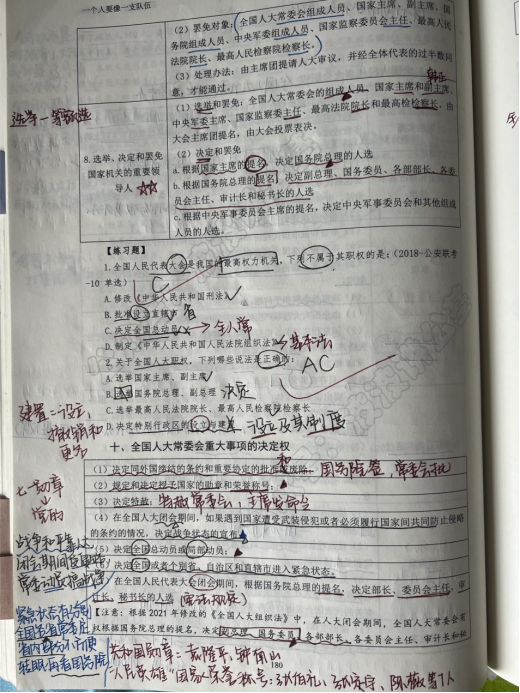 一个人要像一支队伍
（2）罢免对象：全国人大常委会组成人员、国家主席、副主席、国
务院组成人员、中央军委组成人员、国家监察委员会主任、最高人民
法院院长、最高人民检察院检察长。
（3）处理办法：由主席团提请人大审议，并经全体代表的过半数同
意，才能通过。
（1）选举和罢免：全国人大常委会的组成人员、国家主席和副主席、
中央军委主席、国家监察委主任、最高法院院长和最高检检察长，由
大会主席团提名，由大会投票表决。
8.选举、决定和罢免
国家机关的重要领
导人
（2）决定和罢免
a.根据国家主席的提名，决定国务院总理的人选
b.根据国务院总理的提名，决定副总理、国务委员、各部部长、各委
员会主任、审计长和秘书长的人选
c.根据中央军事委员会主席的提名，决定中央军事委员会和其他组成
人员的人选。
【练习题】
1.全国人民代表大会是我国的最高权力机关，下列不属于其职权的是：（2018-公安联考
-10 单选）
C
A.修改《中华人民共和国刑法》
B.批准设立直辖市 省
C.决定全国总动员 → 全人常
D.制定《中华人民共和国人民法院组织法》→基本法
2.关于全国人大职权，下列哪些说法是正确的：
AC
A.选举国家主席、副主席
B.国务院总理、副总理 决定
C.选举最高人民法院院长、最高人民检察院检察长
D.决定特别行政区的设立与建置 设立及其制度
建置=设立，
撤销和
更名
十、全国人大常委会重大事项的决定权
（1）决定同外国缔结的条约和重要协定的批准和废除。国务院签，常委会批
（2）规定和决定授予国家的勋章和荣誉称号；
（3）决定特赦：特赦常委会，主席发命令
（4）在全国人大闭会期间，如果遇到国家遭受武装侵犯或者必须履行国家间共同防止侵略
的条约的情况，决定战争状态的宣布；
（5）决定全国总动员或局部动员；
（6）决定全国或者个别省、自治区和直辖市进入紧急状态。
在全国人民代表大会闭会期间，根据国务院总理的提名，决定部长、委员会主任、审
计长、秘书长的人选（宪法规定）
【注意：根据 2021 年修改的《全国人大组织法》中，在人大闭会期间，全国人大常委会有
权根据国务院总理的提名，决定副总理、国务委员、各部部长、各委员会主任、审计长和秘
180
共和国勋章：袁隆平，钟南山
"人民英雄"国家荣誉称号：张伯礼、张定宇、陈薇等人